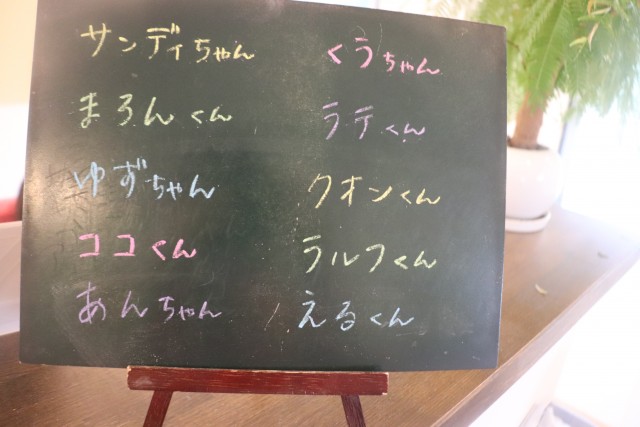 サンディちゃん
まろんくん
ゆずちゃん
ココくん
あんちゃん
くうちゃん
ラテくん
クオンくん
ラルフくん
えるくん